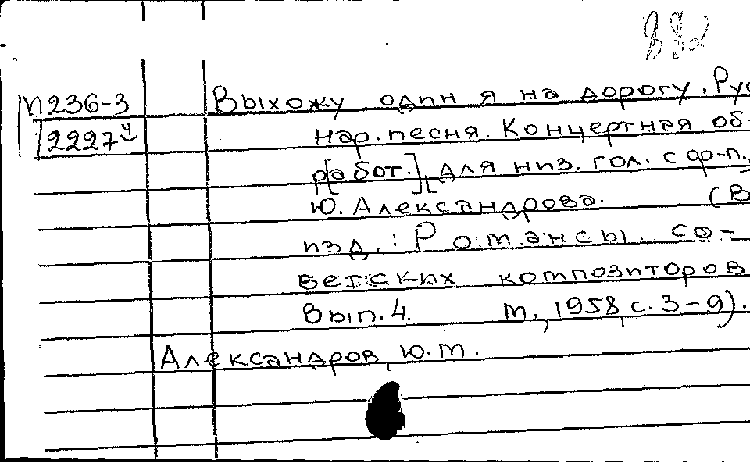 П236-3 Выхожу один я на дорогу. Рус
2227ч нар. песня. Концертная об-
р[абот.] [для низ. гол. с ф-п.
Ю. Александрова. (В
изд.: Романсы со-
ветских композиторов
Вып. 4. М., 1958, с. 3-9).
Александров, Ю.М.